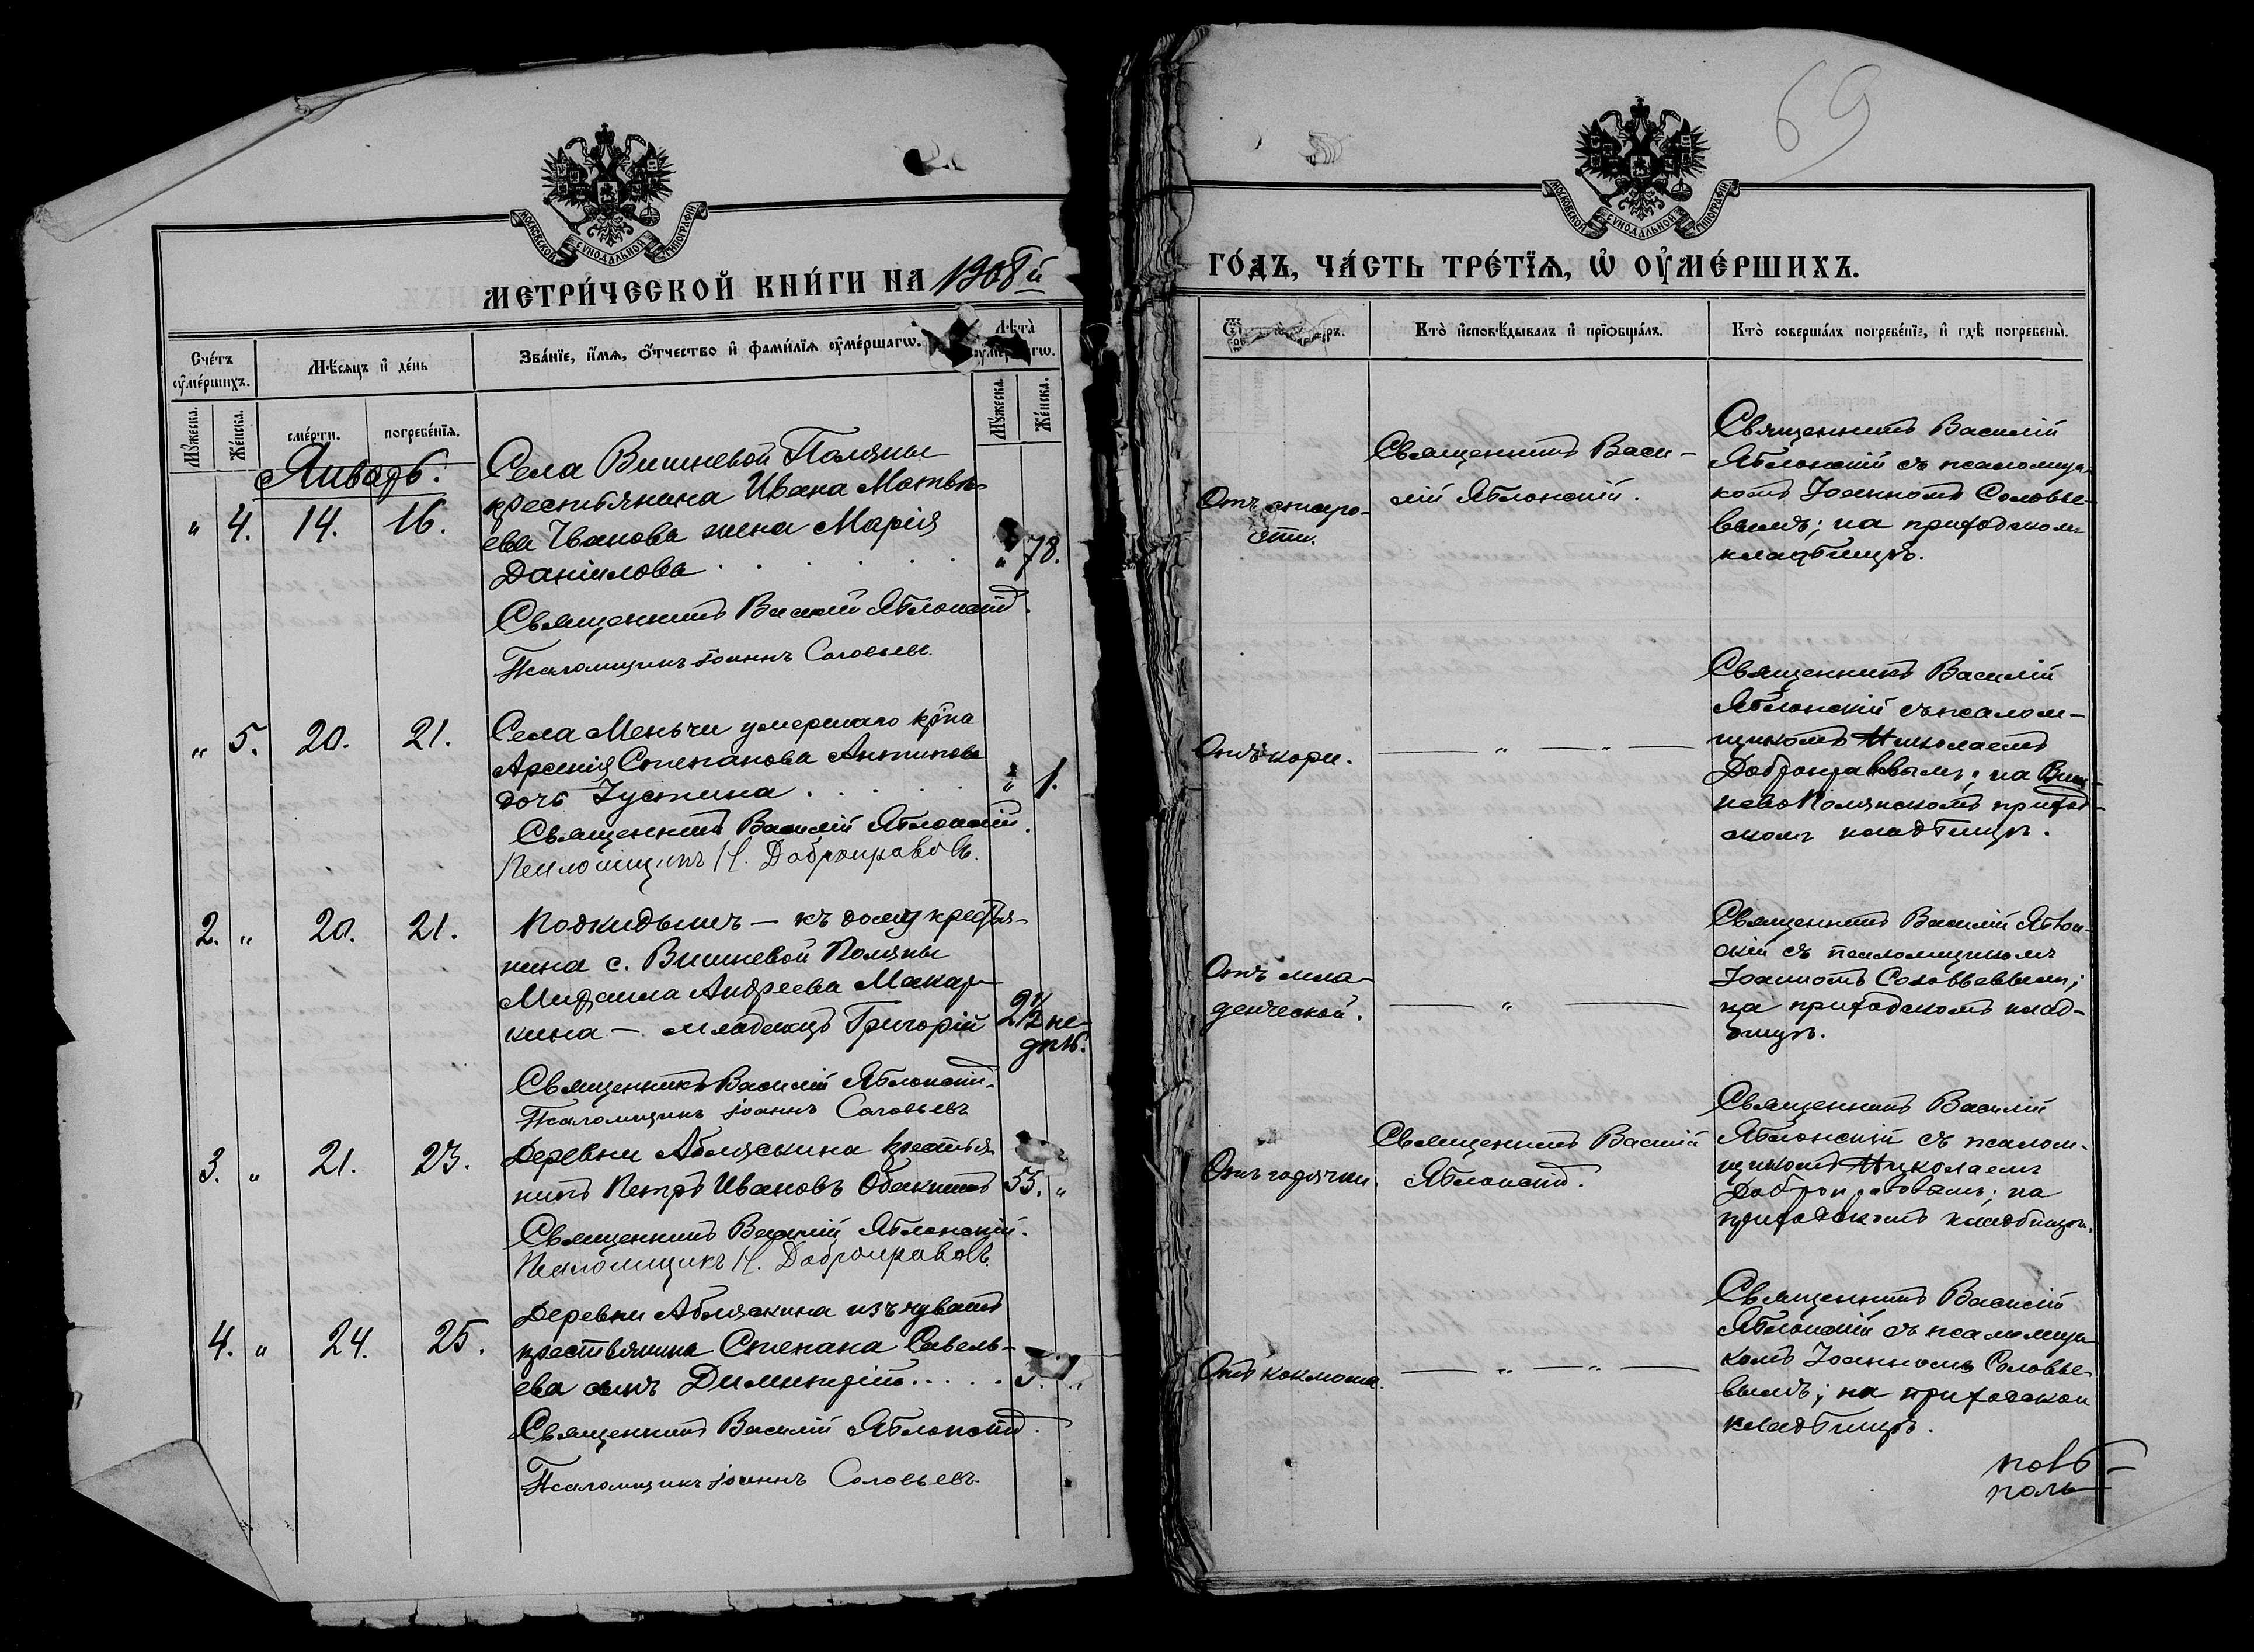 69
МОСКОВСКОЙ СУНОДАЛЬНОЙ ТИПОГРАФІИ
МЕТРИ́ЧЕСКОЙ КНИ́ГИ НА 1908й
Сче́тъ ᲂу҆ме́ршихъ.
Мѣ́сяцъ и҆ де́нь
Зва́нїе, и҆́мѧ, ѻ҆́тчество и҆ фами́лїѧ ᲂу҆ме́ршагѡ.
Лѣ́та̀
Мꙋ́жеска.
Же́нска.
сме́рти.
погребе́нїѧ.
Мꙋ́жеска.
Же́нска.
Январь.
" 4. 14. 16.
Села Вишневой Поляны
крестьянина Ивана Матвѣ-
ева Иванова жена Марія
Даніилова . . . . . . " 78.
Священникъ Василій Яблонскій.
Псаломщикъ Іоаннъ Соловьевъ.
" 5. 20. 21.
Села Меньчи умершаго кр̃на
Арсенія Степанова Антипова
дочь Іустина . . . . . " 1.
Священникъ Василій Яблонскій.
Псаломщикъ Н. Добронравовъ.
2. " 20. 21.
Подкидышъ — къ дому крестья-
нина с. Вишневой Поляны
Михаила Андреева Макар-
кина — младенецъ Григорій 2½ не-
дѣль.
Священникъ Василій Яблонскій.
Псаломщикъ Іоаннъ Соловьевъ
3. " 21. 23.
Деревни Абляскина крестья-
нинъ Петръ Ивановъ 55. "
Священникъ Василій Яблонскій.
Псаломщикъ Н. Добронравовъ.
4. " 24. 25.
Деревни Абляскина изъ чувашъ
крестьянина Степана Савель-
ева сынъ Димитрій . . . . . "
Священникъ Василій Яблонскій.
Псаломщикъ Іоаннъ Соловьевъ
МОСКОВСКОЙ СУНОДАЛЬНОЙ ТИПОГРАФІИ
ГО́ДЪ, ЧА́СТЬ ТРЕ́ТЇѦ, Ѽ ОУ҆МЕ́РШИХЪ.
Кто̀ и҆сповѣ́дывалъ и҆ прїѡбща́лъ.
Кто̀ соверша́лъ погребе́нїе, и҆ гдѣ̀ погребены̀.
Отъ старо-
сти.
Священникъ Васи-
лій Яблонскій.
Священникъ Василій
Яблонскій съ псаломщи-
комъ Іоанномъ Соловье-
вымъ; на приходскомъ
кладбищѣ.
Отъ кори.
— " — " —
Священникъ Василій
Яблонскій съ псалом-
щикомъ Николаемъ
Добронравовымъ; на Виш-
нево Полянскомъ приход-
скомъ кладбищѣ.
Отъ мла-
денческой.
— " —
Священникъ Василій Яблон-
скій съ псаломщикомъ
Іоанномъ Соловьевымъ;
на приходскомъ клад-
бищѣ.
Отъ горячки.
Священникъ Василій
Яблонскій.
Священникъ Василій
Яблонскій съ псалом-
щикомъ Николаемъ
Добронравовымъ; на
приходскомъ кладбищѣ.
Отъ коклюша.
— " — " —
Священникъ Василій
Яблонскій съ псаломщи-
комъ Іоанномъ Соловье-
вымъ; на приходском
кладбищѣ.